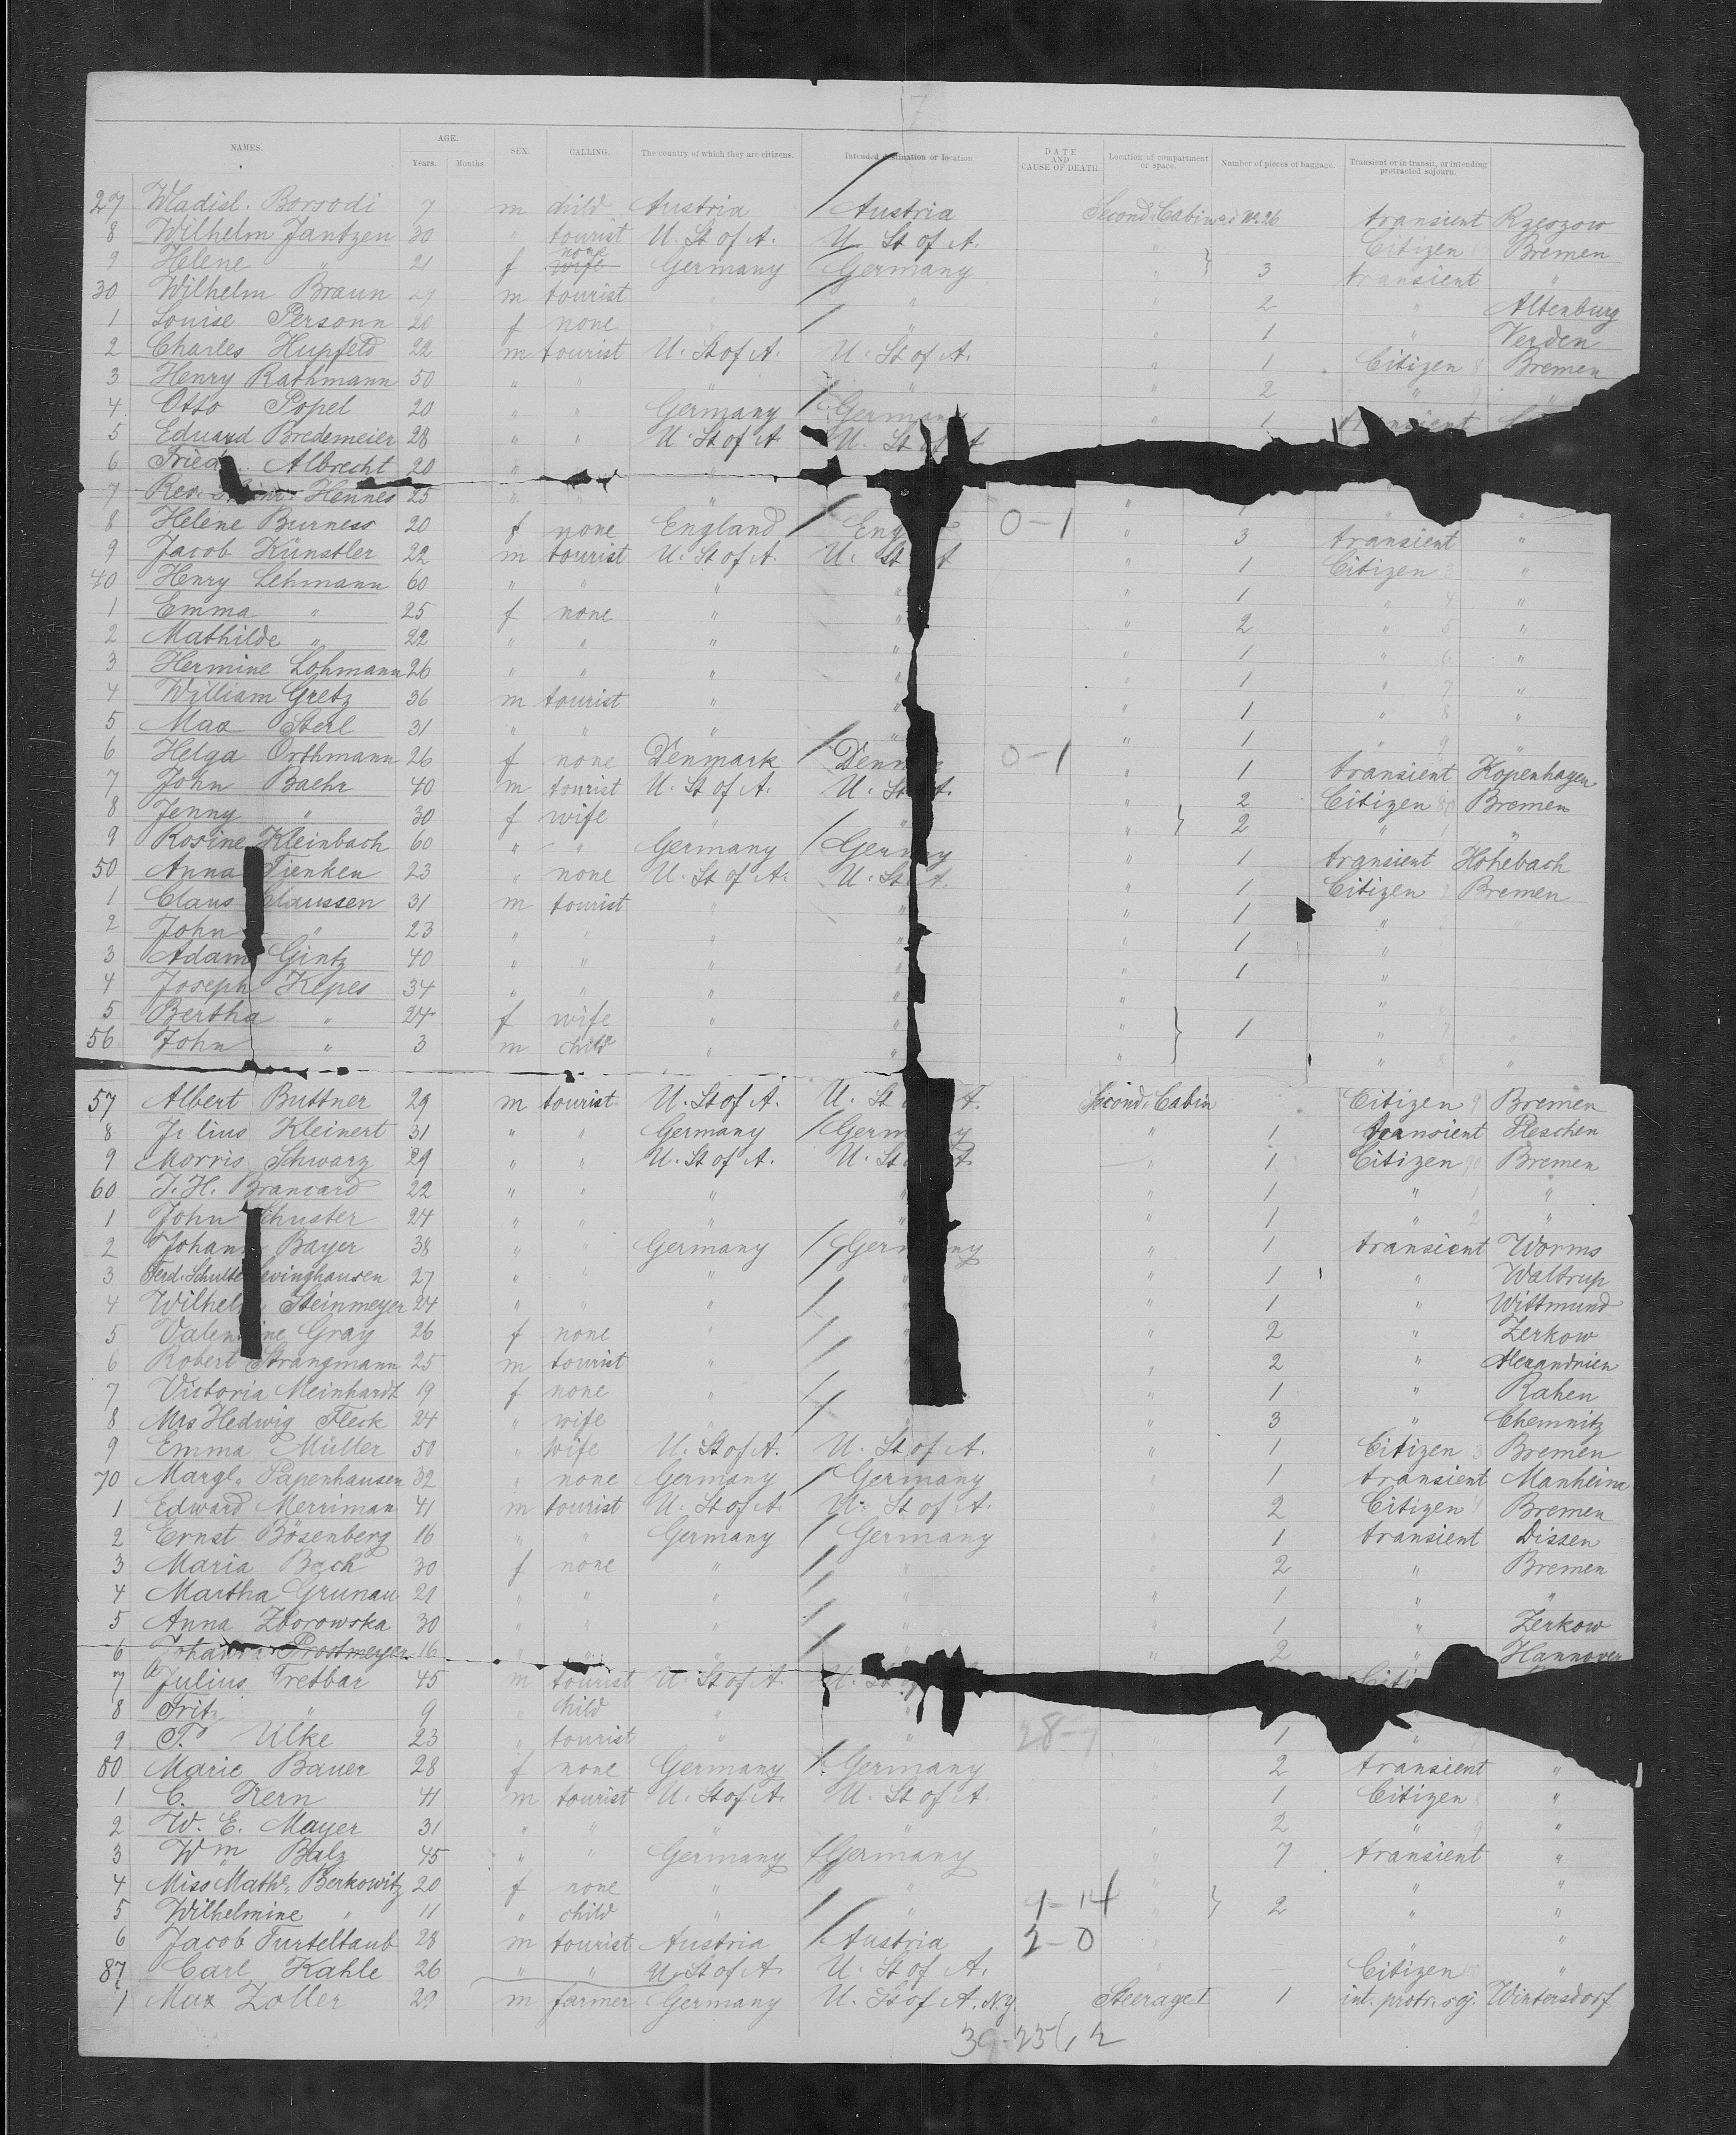 7
NAMES. AGE. Years. Months. SEX. CALLING. The country of which they are citizens. Intended destination or location. DATE AND CAUSE OF DEATH Location of compartment or space. Number of pieces of baggage. Transient or in transit, or intending protracted sojourn.
27 Wladisl. Borsodi 7 m child Austria / Austria Second Cabin 26 transient Rzeszow
8 Wilhelm Jantzen 30 " tourist U. St of A. U. St of A. " Citizen Bremen
9 Helene " 21 f none wife Germany Germany " } 3 transient "
30 Wilhelm Braun 29 m tourist " / " " 2 " Altenburg
1 Louise Personn 20 f none " / " " 1 " Verden
2 Charles Hupfeld 22 m tourist U. St of A. U. St of A. " 1 Citizen 8 Bremen
3 Henry Rathmann 50 " " " " " 2 " 9 "
4 Otto Popel 20 " " Germany / Germany " 1 transient
5 Eduard Bredemeier 28 " " U. St of A U. St of A
6 Fried. Albrecht 20 " "
7 Rev. Hennes 25 " " " "
8 Helene Burness 20 f none England / Eng 0-1 " 3 transient "
9 Jacob Künstler 22 m tourist U. St of A. U. St A " 1 Citizen 3 "
40 Henry Lehmann 60 " " " " " 1 " 4 "
1 Emma " 25 f none " " " 2 " 5 "
2 Mathilde " 22 " " " " " 1 " 6 "
3 Hermine Lohmann 26 " " " " " 1 " 7 "
4 William Gretz 36 m tourist " " " 1 " 8 "
5 Max Sterl 31 " " " " " 1 " 9 "
6 Helga Orthmann 26 f none Denmark / Denn 0-1 " 1 transient Kopenhagen
7 John Baehr 40 m tourist U. St of A. U. St A. " } 2 Citizen 80 Bremen
8 Jenny " 30 f wife " " " 2 " 1 "
9 Rosine Kleinbach 60 " " Germany / Germany " 1 transient Hohebach
50 Anna Tienken 23 " none U. St of A. U. St A. " 1 Citizen Bremen
1 Claus Claussen 31 m tourist " " " 1 " "
2 John " 23 " " " " " 1 "
3 Adam Gintz 40 " " " " " 1 "
4 Joseph Kepes 34 " " " " " "
5 Bertha " 24 f wife " " " } 1 " 7 "
56 John " 3 m child " " " " 8 "
57 Albert Buttner 29 m tourist U. St of A. U. St A. Second Cabin Citizen 9 Bremen
8 Julius Kleinert 31 " " Germany / Germany " 1 transient Pleschen
9 Morris Schwarz 29 " " U. St of A. U. St A. " 1 Citizen 90 Bremen
60 J. H. Brancard 22 " " " " " 1 " 1 "
1 John Schuster 24 " " " " 1 " 2 "
2 Johann Bayer 38 " " Germany / Germany " 1 transient Worms
3 Ferd. Schulte evinghausen 27 " " " / " 1 " Waltrup
4 Wilhelm Steinmeyer 24 " " " / " 1 " Wittmund
5 Valentine Gray 26 f none " / " 2 " Zerkow
6 Robert Strangmann 25 m tourist " / " 2 " Alexandrien
7 Victoria Meinhardt 19 f none " / " 1 " Rahen
8 Mrs Hedwig Fleck 24 " wife " / " " 3 " Chemnitz
9 Emma Müller 50 " wife U. St of A. U. St of A. " 1 Citizen 3 Bremen
70 Margl. Papenhausen 32 " none Germany / Germany " 1 transient Manheim
1 Edward Merriman 41 m tourist U. St of A. U. St of A. " 2 Citizen 4 Bremen
2 Ernst Bösenberg 16 " " Germany / Germany " 1 transient Dissen
3 Maria Bach 30 f none " / " " 2 " Bremen
4 Martha Grunau 21 " " " / " " 1 " "
5 Anna Zborowska 30 " " " / " " 1 " Zerkow
6 Johanna Prostmeyer 16 " " " / " 2 " Hannover
7 Julius Tretbar 45 m tourist U. St of A. U. St Citi
8 Fritz " 9 " child " "
9 T. Ulke 23 " tourist " " 28-7 " 1 "
80 Marie Bauer 28 f none Germany / Germany " 2 transient "
1 C. Kern 41 m tourist U. St of A. U. St of A. " 1 Citizen 8 "
2 W. E. Mayer 31 " " " " " 2 " 9 "
3 Wm Balz 45 " " Germany / Germany " 7 transient "
4 Miss Mathe. Berkowitz 20 f none " / " " } 2 " "
5 Wilhelmine " 11 " child " / " 9-14 " " "
6 Jacob Turteltaub 28 m tourist Austria / Austria 2-0 " " "
87 Carl Kahle 26 " " U. St of A. U. St of A. " Citizen "
1 Max Zoller 29 m farmer Germany U. St of A. N.y. Steerage I 1 int. protr. soj. Wintersdorf
39-23